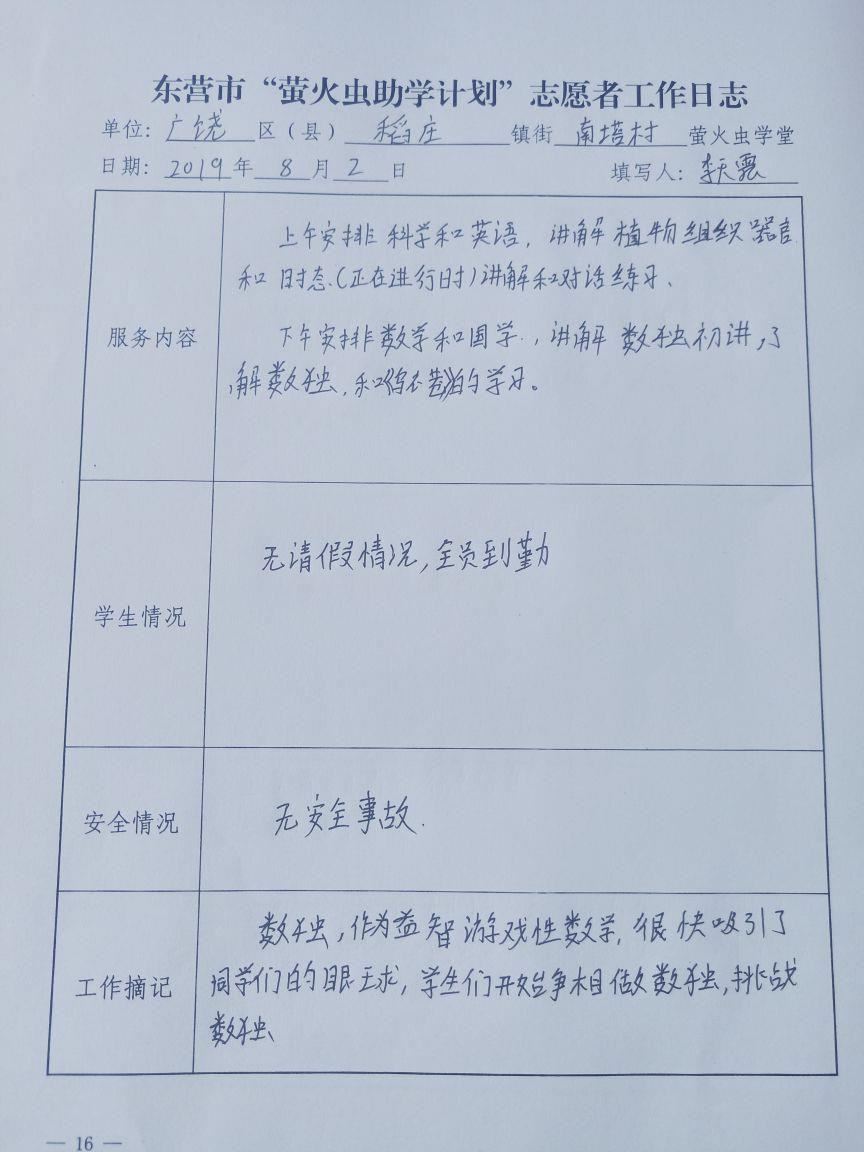 东营市“萤火虫助学计划”志愿者工作日志
单位：广饶区（县）稻庄镇街南塔村萤火虫学堂
日期：2019年8月2日 填写人：李天露
服务内容
上午安排科学和英语，讲解植物组织器官
和时态（正在进行时）讲解和对话练习、
下午安排数学和国学，讲解数独初讲，了
解数独，和的学习。
学生情况
无请假情况，全员到勤
安全情况
无安全事故.
工作摘记
数独，作为益智游戏性数学，很快吸引了
同学们的眼球，学生们开始争相做数独，挑战
数独、
— 16 —